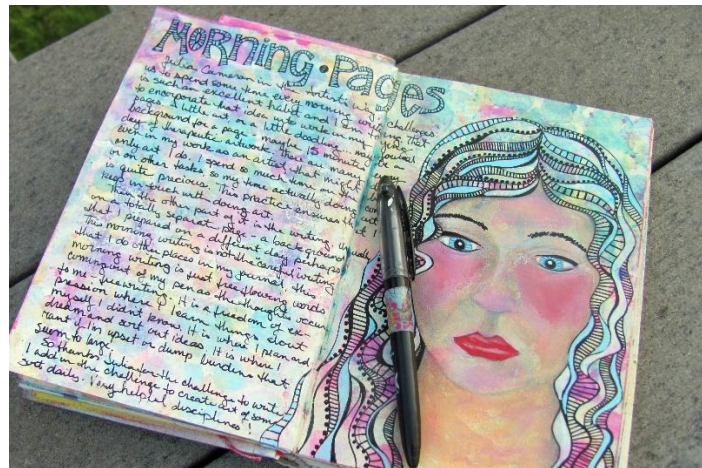 Morning • Pages
Julia Cameron in The Artist's Way challenges
us to spend some time every morning
is such an excellent habit and I am
to incorporate that idea
page. A little art or a little doodling
background for a page - maybe 15 minutes
day of therapeutic artwork. There are many
even in my work as an artist that might
only art I do. I spend so much time on
or on other tasks so my time actually doing
is quite precious. This practice ensures that
keep in touch with doing art.
Then the other part of it is the writing. Usually
on a totally separate page - a background
that I prepared on a different day perhaps.
This morning writing is not the careful writing
that I do other places in my journal. This
morning writing is that free flowing words
coming out of my pen as the thoughts occur
to me freewriting. It is a freedom of ex-
pression where I learn things about
myself I didn't know. It is where I plan and
dream and sort out ideas. It is where I
rant if I'm upset or dump burdens that
seem to large!
So thanks Julia for the challenge to write.
I add in the challenge to create art of some
sort daily. Very helpful disciplines!